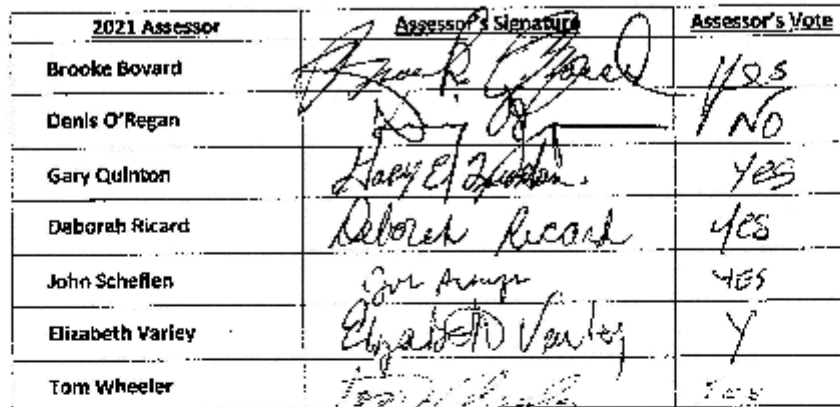 2021 Assessor Assessor's Signature Assessor's Vote
Brooke Bovard Yes
Denis O'Regan NO
Gary Quinton Gary E Quinton. Yes
Deborah Ricard Deborah Ricard YES
John Scheflen YES
Elizabeth Varley Elizabeth Varley Y
Tom Wheeler Yes